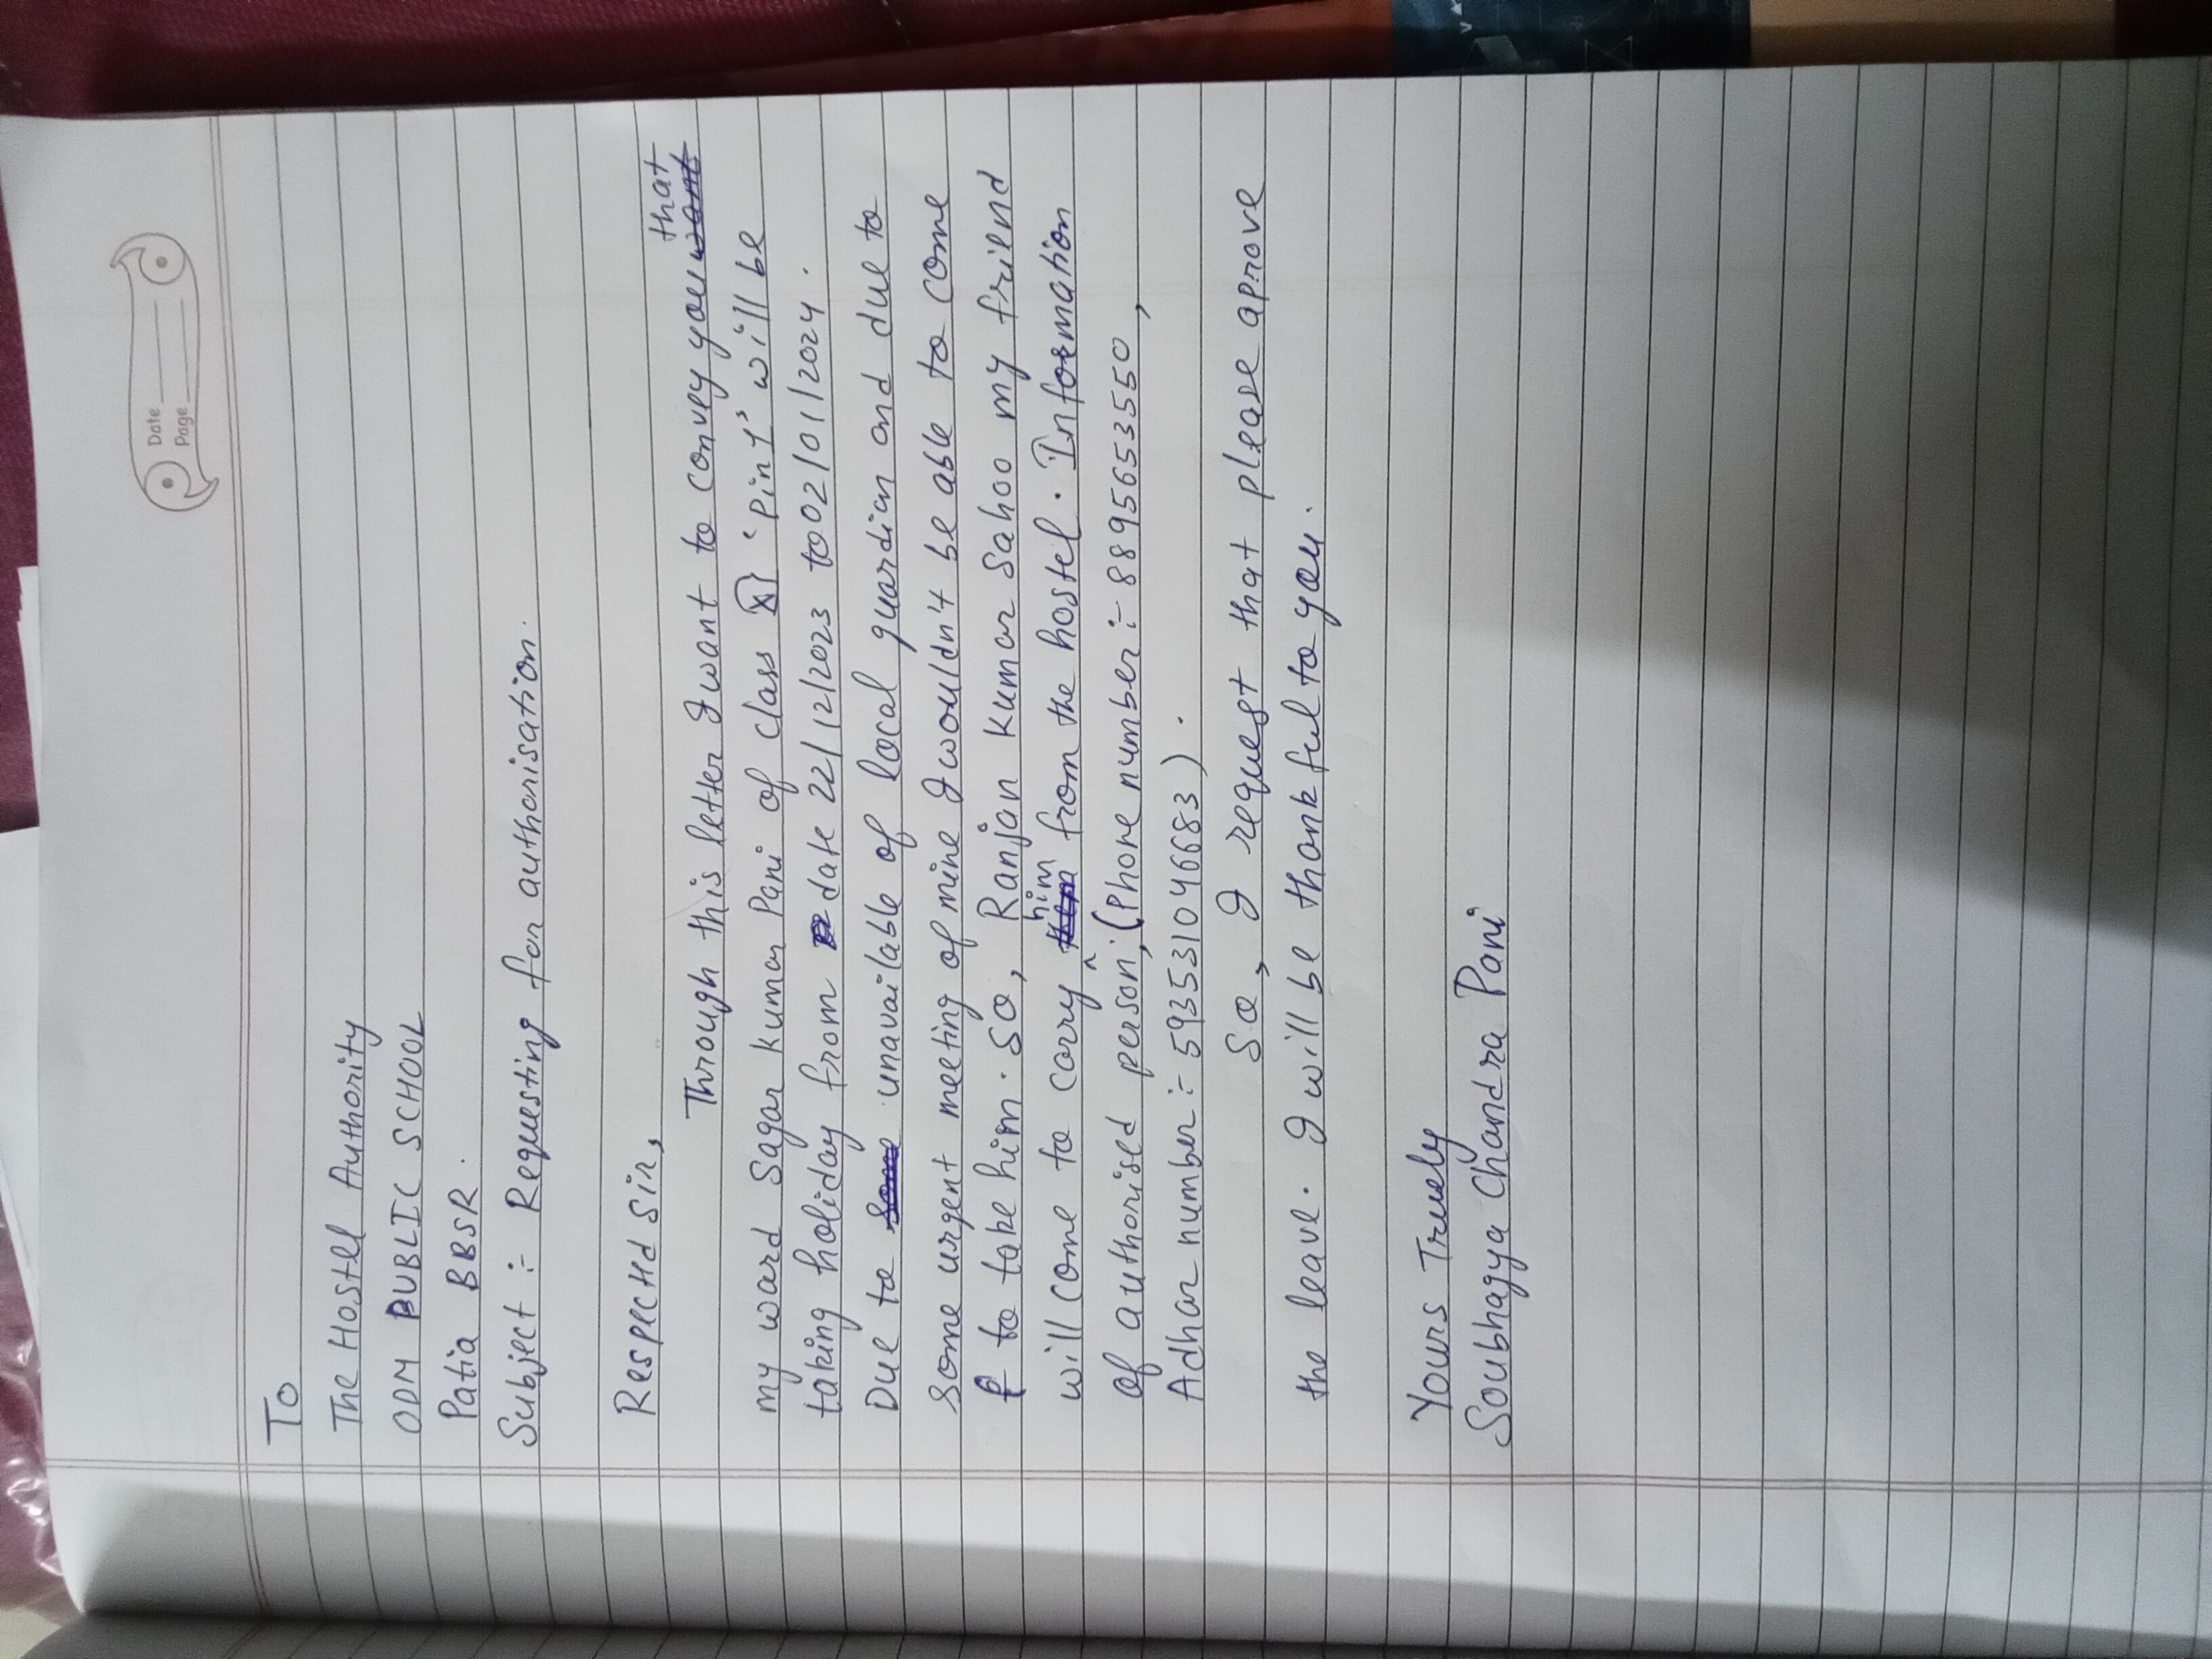 Date
Page
To
The Hostel Authority
ODM PUBLIC SCHOOL
Patia BBSR.
Subject :- Requesting for authorisation.
Respected Sir,
Through this letter I want to convey you that
my ward Sagar Kumar Pani of class XI 'Pin1' will be
taking holiday from date 22/12/2023 to 02/01/2024.
Due to unavailable of local guardian and due to
some urgent meeting of mine I wouldn't be able to come
to take him. So, Ranjan Kumar Sahoo my friend
will come to carry him from the hostel. Information
of authorised person, (Phone number :- 8895653550,
Adhar number :- 593531046683).
So, I request that please aprove
the leave. I will be thankful to you.
Yours Truely
Soubhagya Chandra Pani